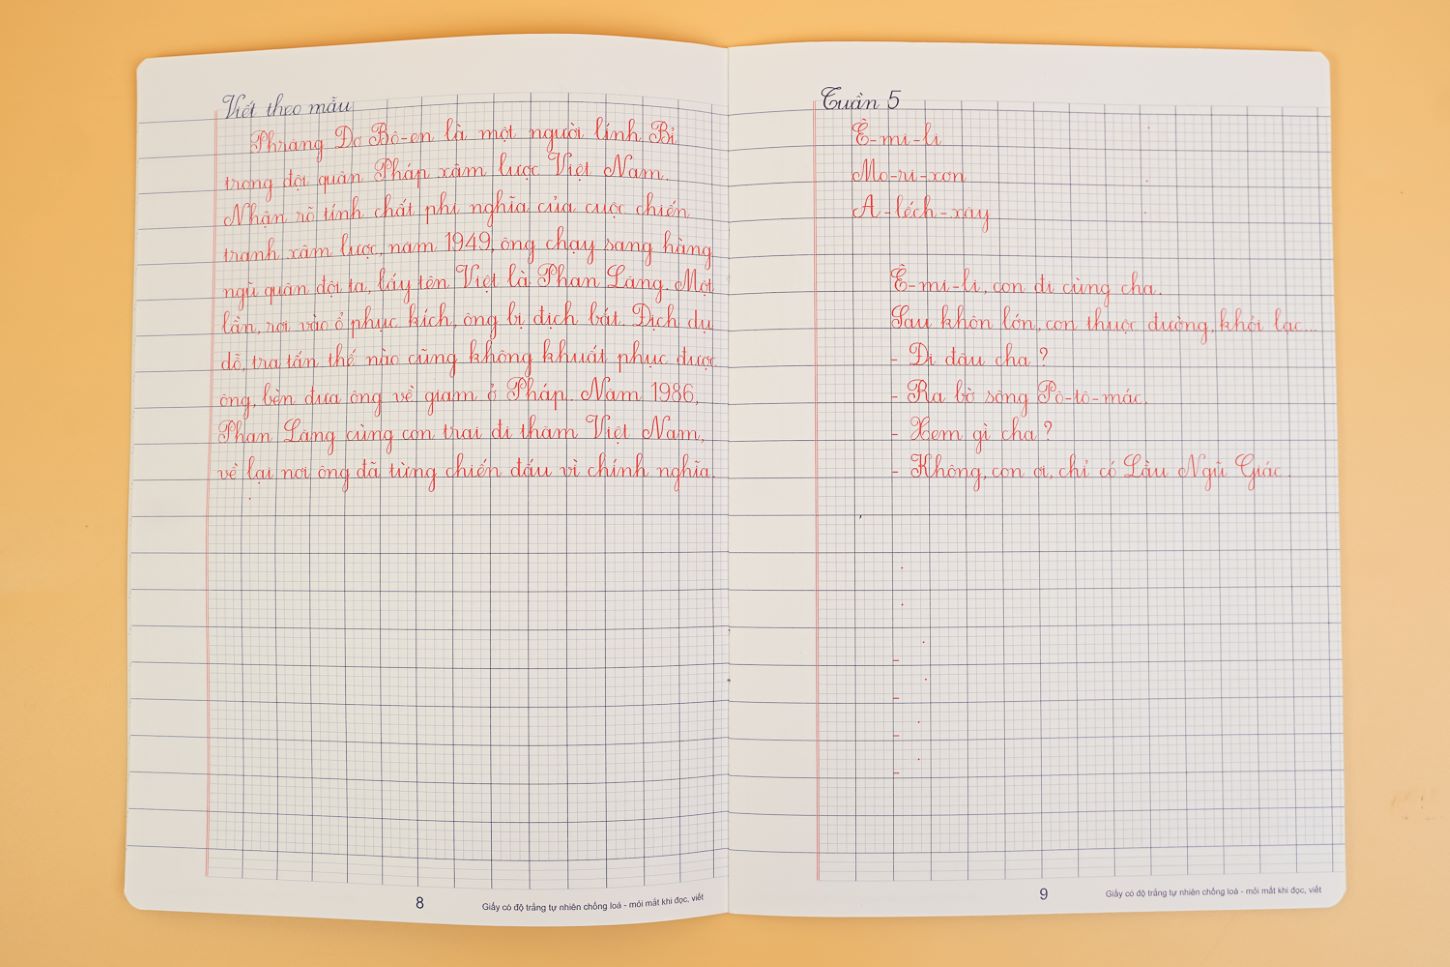 Viết theo mẫu
Phrăng Đơ Bô-en là một người lính Bỉ
trong đội quân Pháp xâm lược Việt Nam.
Nhận rõ tính chất phi nghĩa của cuộc chiến
tranh xâm lược, năm 1949, ông chạy sang hàng
ngũ quân đội ta, lấy tên Việt là Phan Lăng. Một
lần, rơi vào ổ phục kích, ông bị địch bắt. Địch dụ
dỗ, tra tấn thế nào cũng không khuất phục được
ông, bèn đưa ông về giam ở Pháp. Năm 1986,
Phan Lăng cùng con trai đi thăm Việt Nam,
về lại nơi ông đã từng chiến đấu vì chính nghĩa.
8
Giấy có độ trắng tự nhiên chống loá - mỏi mắt khi đọc, viết
Tuần 5
Ê-mi-li
Mo-ri-xơn
A-lếch-xây
Ê-mi-li, con đi cùng cha.
Sau khôn lớn, con thuộc đường, khỏi lạc...
- Đi đâu cha?
- Ra bờ sông Pô-tô-mác.
- Xem gì cha?
- Không, con ơi, chỉ có Lầu Ngũ Giác.
9
Giấy có độ trắng tự nhiên chống loá - mỏi mắt khi đọc, viết